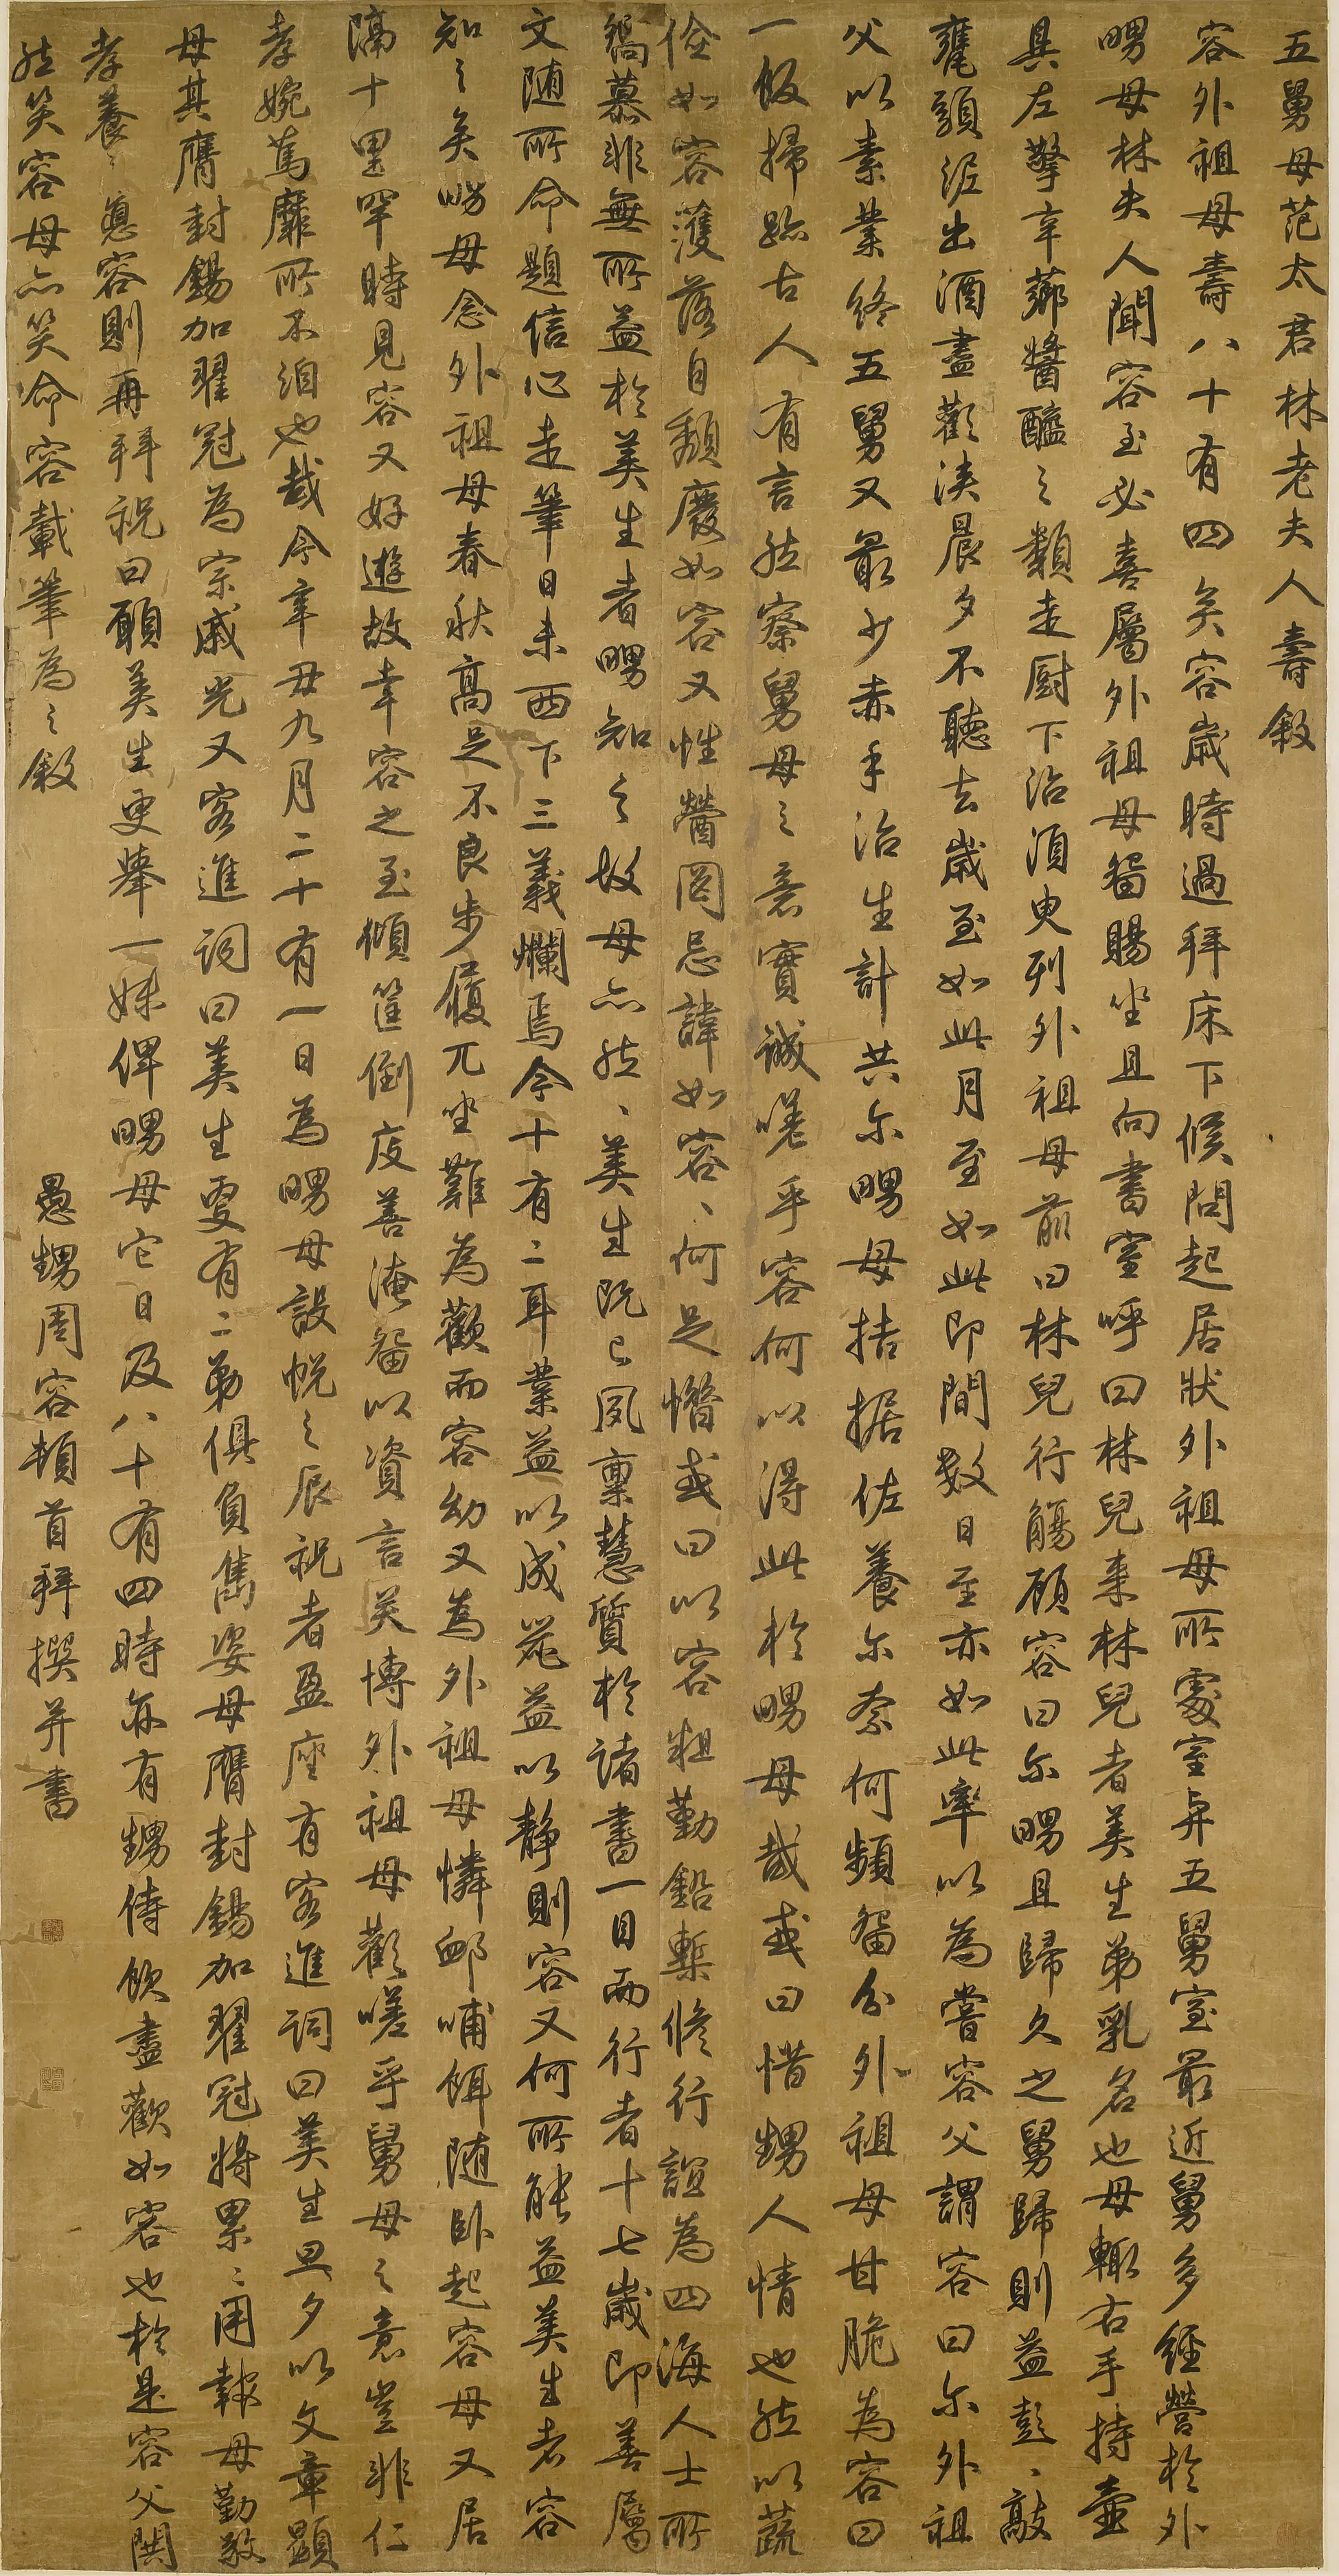 五舅母范太君林老夫人壽敘
容外祖母壽八十有四矣容歲時過拜床下候問起居狀外祖母所處室與五舅室最近舅多經營於外
甥母林夫人聞容至必喜屬外祖母留賜坐且向書室呼曰林兒來林兒者美生弟乳名也母輒右手持壺
具左擎辛薌醬醢之類走厨下治湏臾列外祖母前曰林兒行觴顧容曰尔甥且歸久之舅歸則益彭、敲
甕頭泥出酒盡歡浹晨夕不聽去歲至如此月至如此即間數日至亦如此率以為嘗容父謂容曰尔外祖
父以素業終五舅又最少赤手治生計共尔甥母拮据佐養尔奈何頻留分外祖母甘脆為容曰
一飯掃跡古人有言然察舅母之意實誠嗟乎容何以得此於甥母哉或曰惜甥人情也然以蔬
儉如容濩落自頹廢如容又性懵罔忌諱如容、何足惜或曰以容粗勤鉛槧修行誼為四海人士所
縞慕非無所益於美生者甥知之故母亦然、美生既已夙稟慧質於諸書一目兩行者十七歲即善屬
文随所命題信心走筆日未西下三義爛焉今十有二耳業益以成茂益以靜則容又何所能益美生者容
知之矣甥母念外祖母春秋高足不良步履兀坐難為歡而容幼又為外祖母憐卹哺餌随卧起容母又居
隔十里罕時見容又好遊故幸容之至傾筐倒庋善淹留以資言笑博外祖母歡嗟乎舅母之意豈非仁
孝婉篤靡所不洎也哉今辛丑九月二十有一日為甥母設帨之辰祝者盈座有客進詞曰美生旦夕以文章顯
母其膺封錫加翟冠為宗戚光又客進詞曰美生更有二弟俱負雋姿母膺封錫加翟冠將累、用報母勤敬
孝養之意容則再拜祝曰願美生更舉一妹俾甥母它日及八十有四時亦有甥侍飲盡歡如容也於是容父閧
然笑容母亦笑命容載筆為之敘
愚甥周容頓首拜撰并書